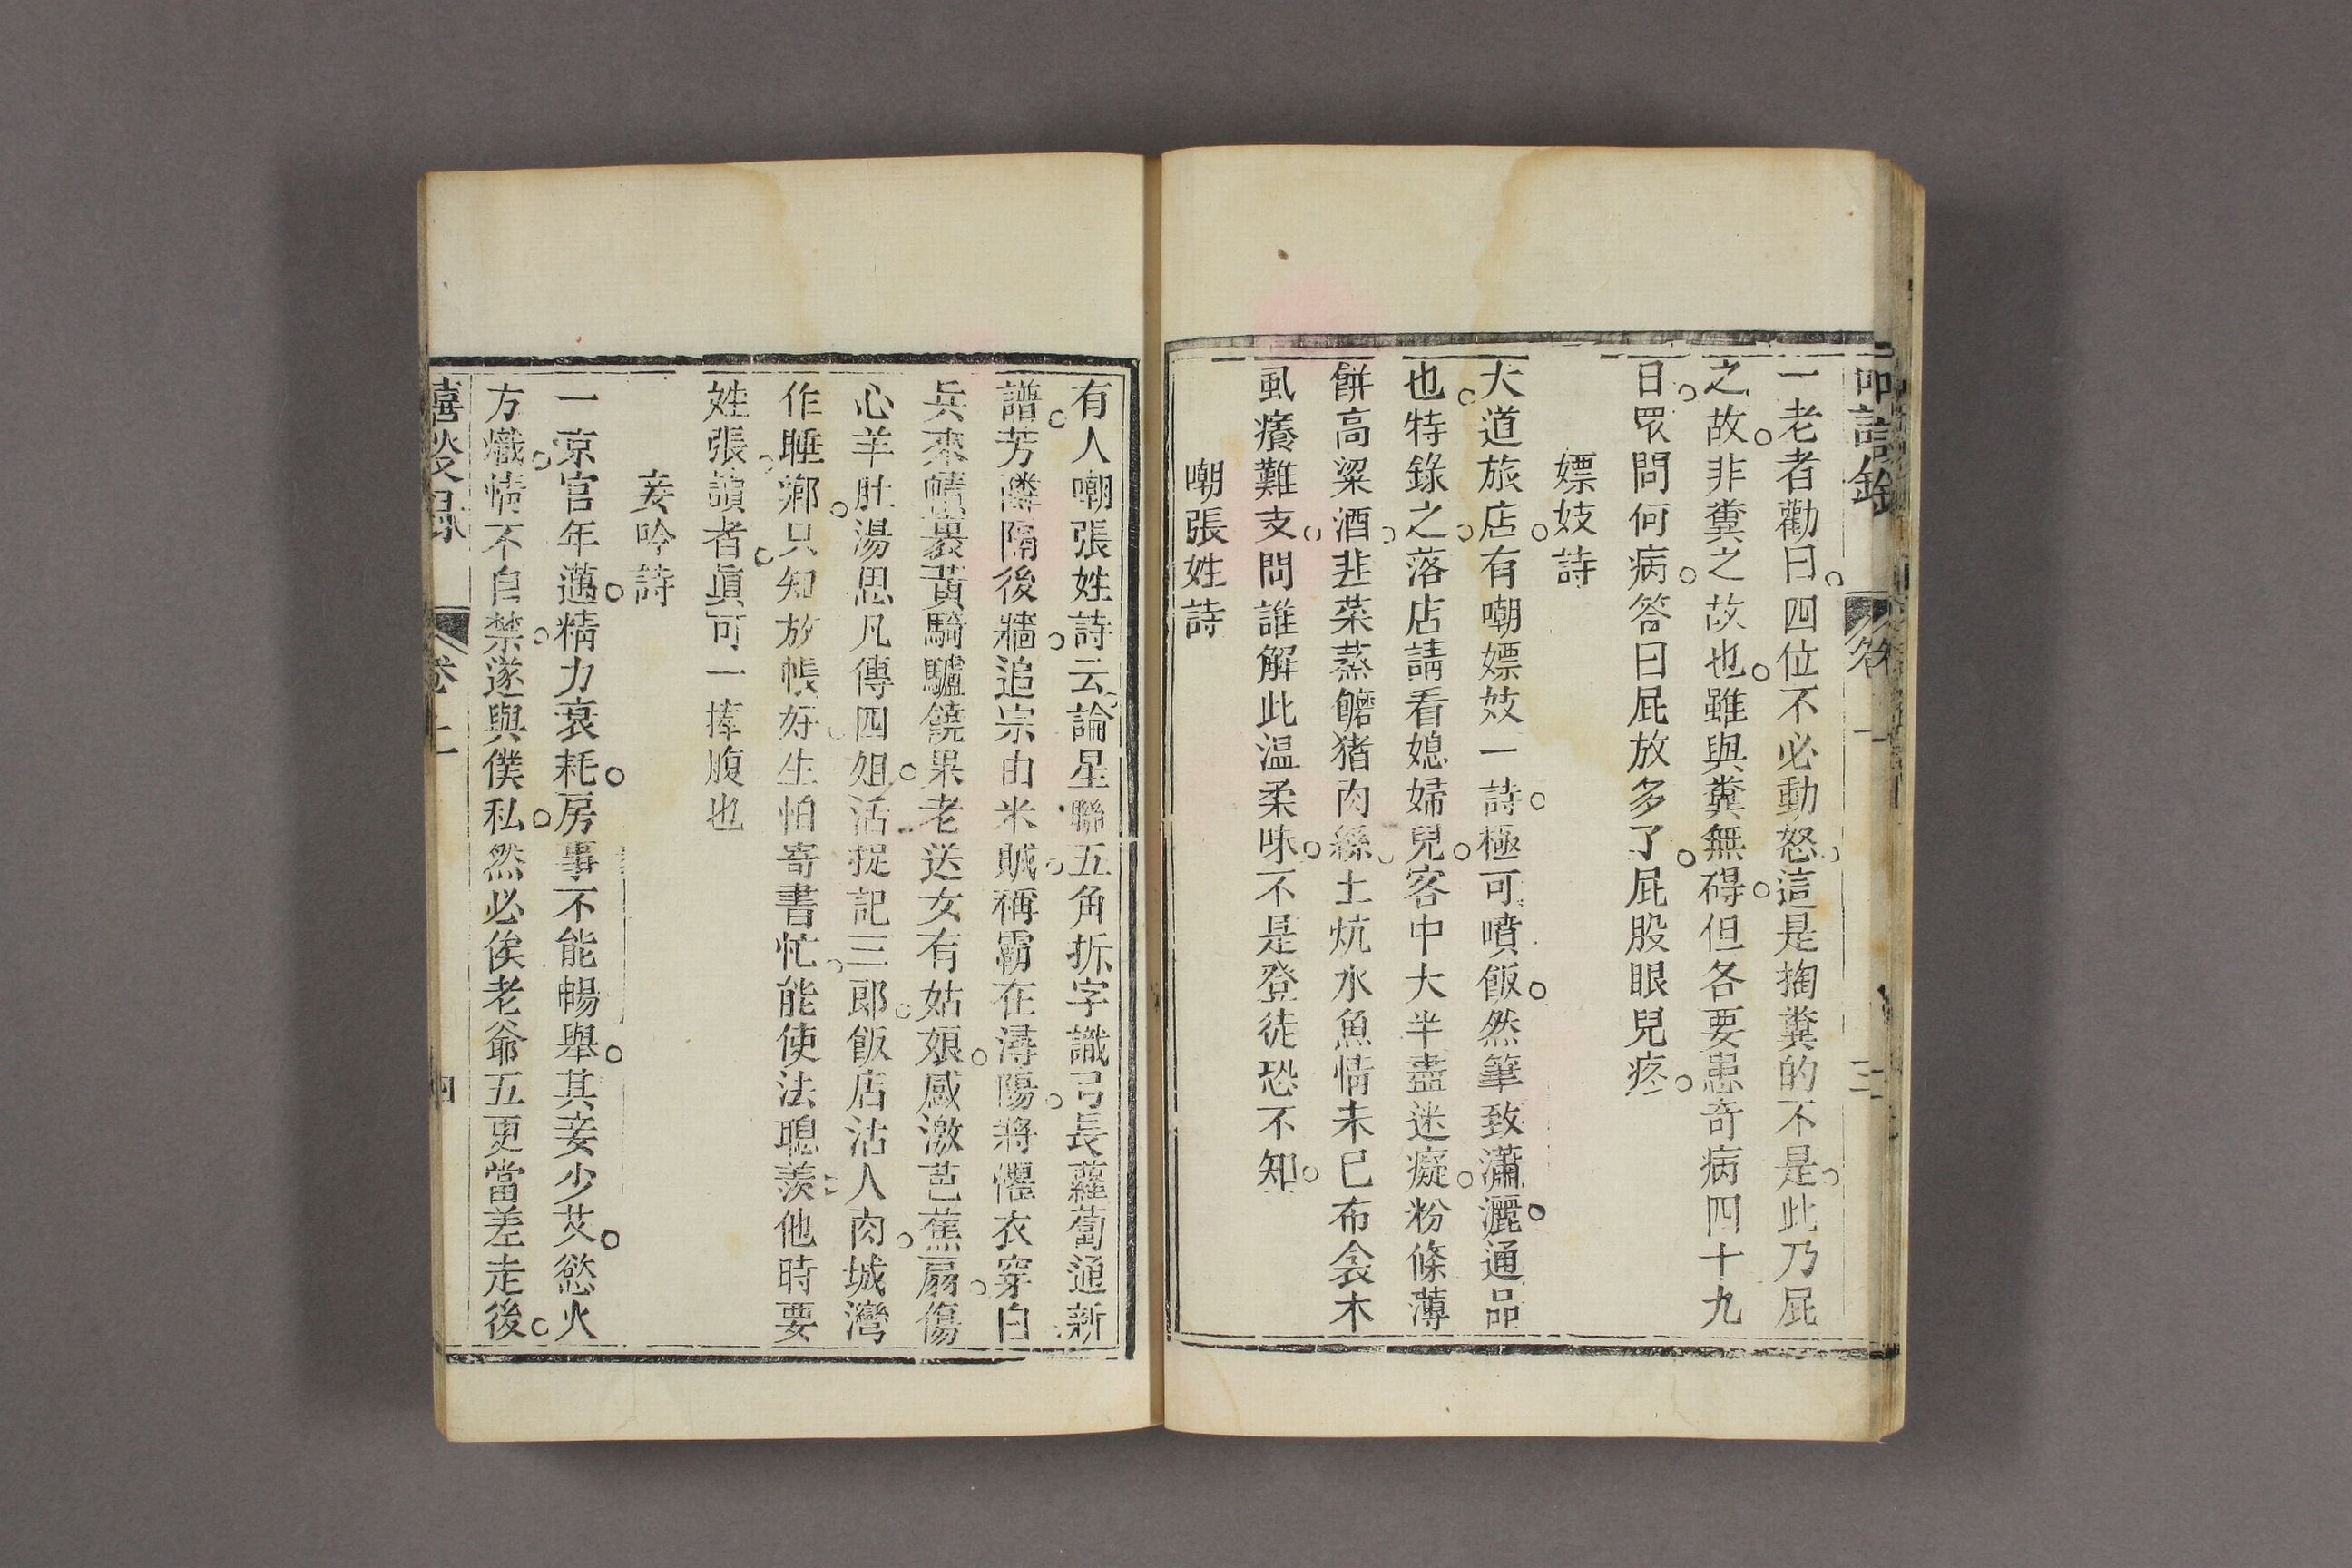 一老者勸曰四位不必動怒這是掏糞的不是此乃屁
之故非糞之故也雖與糞無碍但各要患奇病四十九
日眾問何病答曰屁放多了屁股眼兒疼
嫖妓詩
大道旅店有嘲嫖妓一詩極可噴飯然筆致瀟灑通品
也特錄之落店請看媳婦兒客中大半盡迷癡粉條薄
餅高粱酒韭菜蒸饝猪肉絲土炕水魚情未已布衾木
虱癢難支問誰解此温柔味不是登徒恐不知
嘲張姓詩
有人嘲張姓詩云論星聯五角拆字識弓長蘿蔔通新
譜芳隣隔後牆追宗由米賊稱霸在潯陽將懼衣穿白
兵來幘裹黃騎驢饒果老送女有姑娘感激芭蕉扇傷
心羊肚湯思凡傳四姐活捉記三郎飯店沽人肉城灣
作睡鄉只知放帳好生怕寄書忙能使法聰羨他時要
姓張讀者眞可一捧腹也
妾吟詩
一京官年邁精力衰耗房事不能暢舉其妾少艾慾火
方熾情不自禁遂與僕私然必俟老爺五更當差走後
嘻談录 卷上 四